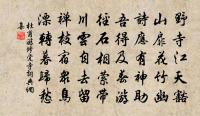 野寺江天豁
山扉花竹幽
詩應有神助
吾得及春游
徑石相縈帶
川雲自去留
禪枝宿衆鳥
漂轉暮歸愁
杜甫遊修覺寺
集